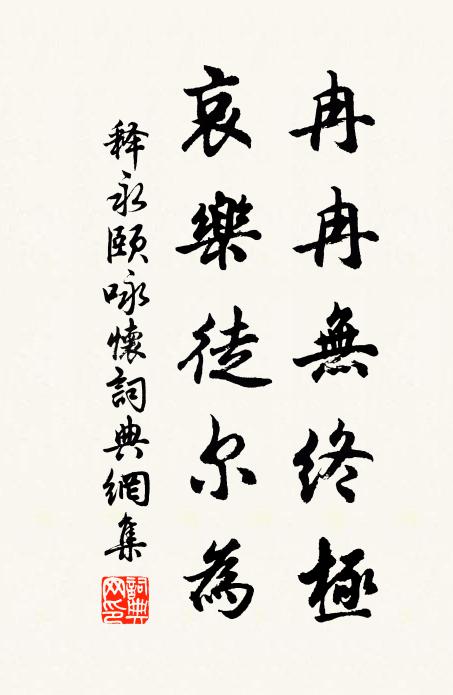 冉冉無終極
哀樂徒尔為
释永頤咏懷詞典網集
詞典网印